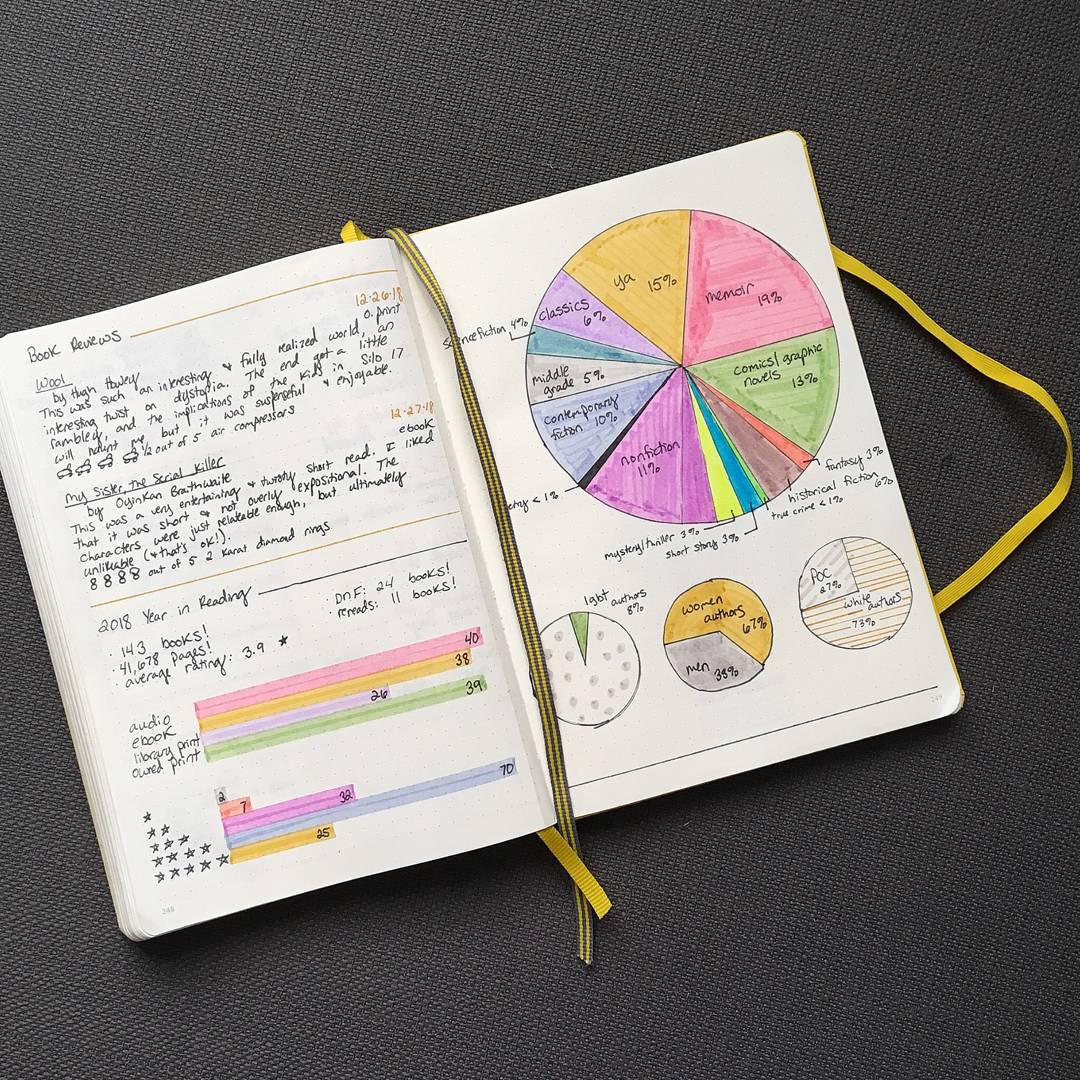 Book Reviews
12.26.18
Wool
o. print
by Hugh Howey
This was such an interesting & fully realized world, an
interesting twist on dystopia. The end got a little
rambley, and the implications of the kids in Silo 17
will haunt me, but it was suspenseful & enjoyable.
½ out of 5 air compressors
12.27.18
My Sister, the Serial Killer
ebook
by Oyinkan Braithwaite
This was a very entertaining & twisty short read. I liked
that it was short & not overly expositional. The
characters were just relateable enough, but ultimately
unlikable (& that's ok!).
8 8 8 8 out of 5 2 karat diamond rings
2018 Year in Reading
· 143 books!
· DNF: 24 books!
· 41,678 pages!
· rereads: 11 books!
· average rating: 3.9 ★
audio 40
ebook 38
library print 26
owned print 39
★ 2
★★ 7
★★★ 32
★★★★ 70
★★★★★ 25
248
ya 15%
memoir 19%
classics 6%
science fiction 4%
comics/graphic
novels
13%
middle
grade 5%
contemporary
fiction 10%
nonfiction
11%
fantasy 3%
historical fiction
6%
true crime < 1%
short story 3%
mystery/thriller 3%
< 1%
lgbt authors
8%
women
authors
67%
men 33%
POC
27%
white authors
73%
249